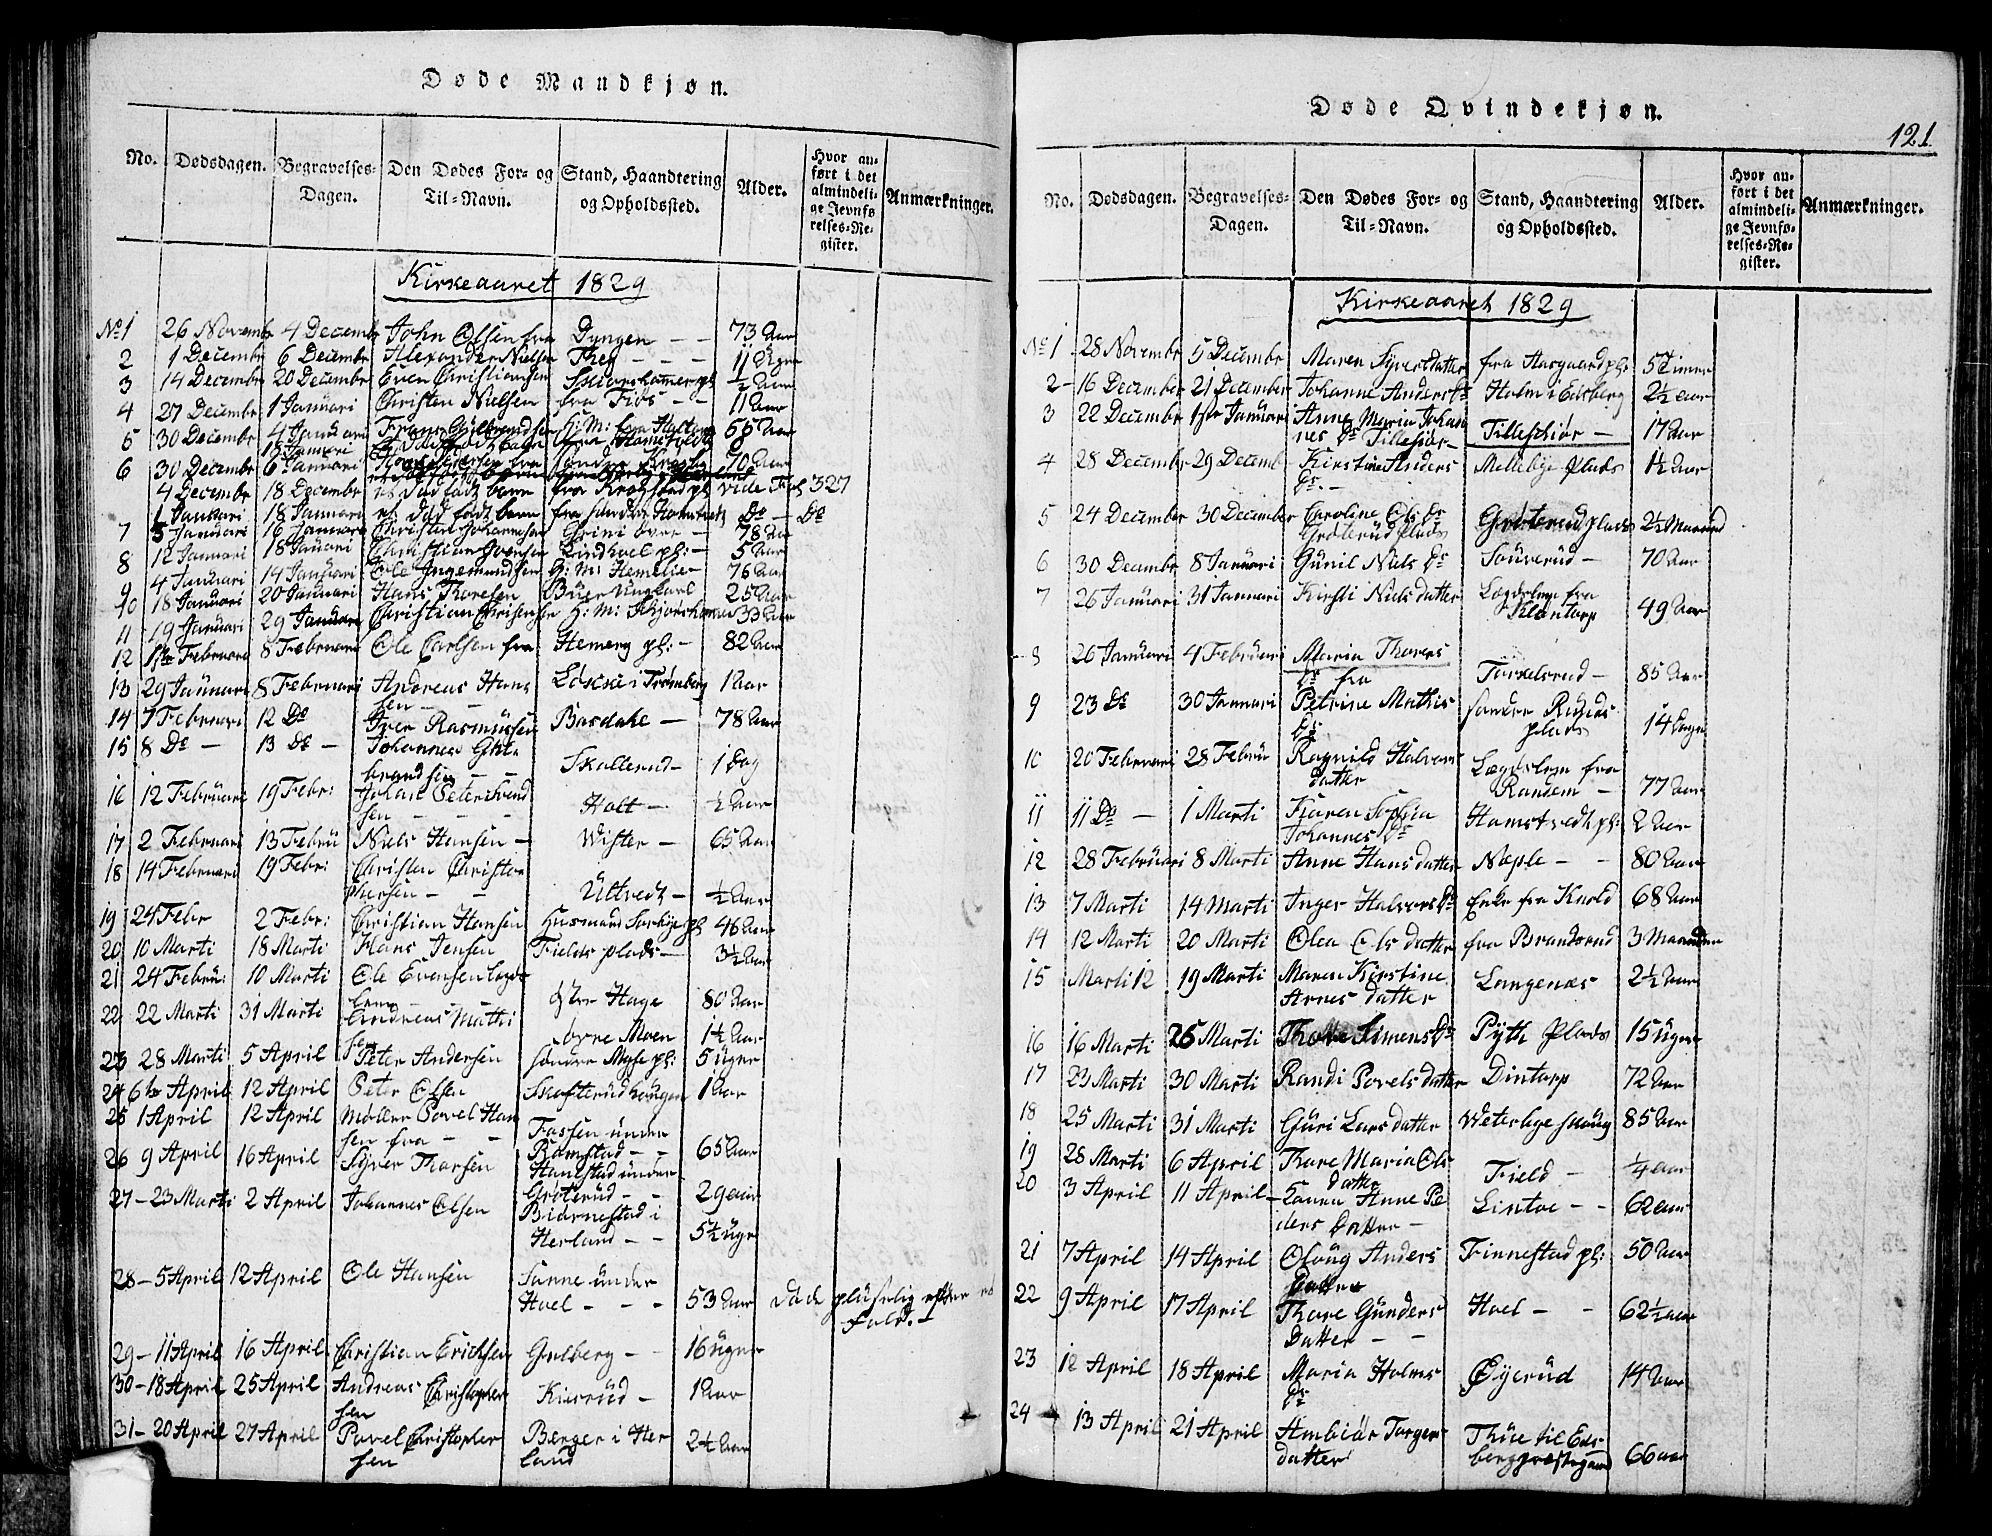 Døde Mandkjøn.
No. Dødsdagen. Begravelses-Dagen. Den Dødes For- og Til-Navn. Stand, Haandtering og Opholdssted. Alder. Hvor anført i det almindelige Jevnførelses-Register. Anmærkninger.
Kirkeaaret 1829
No 1 26 Novembr 4 Decembr John Olsen fra Dyngen - - 73 Aar
2 1 Decembr 6 Decembr Alexander Nielsen Theg - - - 11 Uger
3 14 Decembr 20 Decembr Even Christiansen Skiørshamer pl ½ Aar
4 27 Decembr 1 Januari Christen Nielsen fra Fiøs - - 11 Aar
5 30 Decembr 4 Januari Frans Gulbrandsen H: M: fra 66 Aar
6 30 Decembr 6 Januari fra søndre 70 Aar
4 Decembr 18 Decembr et død født barn fra Krogstad pl vide Fol 327
1 Januari 18 Januari et død født barn fra søndre Do - Do
7 5 Januari 16 Januari Christian Johannesen Grini øvre - 78 Aar
8 12 Januari 18 Januari Christian Iversen Lindhoel pl: - 5 Aar
9 4 Januari 14 Januari Ole Ingemundsen H: M: Hemelie - 76 Aar
10 18 Januari 20 Januari Hans Thoresen Buer Ungkarl 25 Aar
11 19 Januari 29 Januari Christian Christensen H: M: 33 Aar
12 1ste Februari 8 Februari Ole Carlsen fra Hemeng pl: - 82 Aar
13 29 Januari 8 Februari Andreas Hansen - Løkke i Trømborg 1 Aar
14 7 Februari 12 Do Iver Rasmussen Basdahl - 78 Aar
15 8 Do - 13 Do - Johannes Gulbrandsen - - Skallerud - 1 Dag
16 12 Februari 19 Febr: Johan Peter Svendsen - - - Holt - ½ Aar
17 2 Februari 13 Febru Niels Hansen - Wister - 65 Aar
18 14 Februari 19 Febr: Christen Christophersen - - Ultvedt - ½ Aar
19 24 Febr 2 Febr: Christian Hansen Husmand pl 46 Aar
20 10 Marti 18 Marti Hans Jensen Fields plads - 3½ Aar
21 24 Febru: 10 Marti Ole Evensen Lægdslem øvre Hage 80 Aar
22 22 Marti 31 Marti Andreas Mathisen øvre Moen 1¼ Aar
23 28 Marti 5 April Peter Andersen søndre Mysse pl: 5 Uger
24 6te April 12 April Peter Olsen Skofterud haugen 1 Aar
25 1 April 12 April Møller Povel Hansen fra - - Fossen under Ramstad - - 65 Aar
26 9 April 16 April Syver Thorsen under Grøterud - - 29 Aar
27 - 23 Marti 2 April Johannes Olsen Biørnestad i Herland - - 5½ Uger
28 - 5 April 12 April Ole Hansen Sanne under Hoel - - - 53 Aar døde pludselig efter et Fald. -
29 - 11 April 16 April Christian Erichsen Gulberg - - 16 Uger
30 - 18 April 25 April Andreas Christophersen Kiusrud - 1 Aar
31 - 20 April 27 April Povel Christophersen Berger i Herland 2½ Aar
Døde Qvindekjøn.
121
No. Dødsdagen. Begravelses-Dagen. Den Dødes For- og Til-Navn. Stand, Haandtering og Opholdssted. Alder. Hvor anført i det almindelige Jevnførelses-Register. Anmærkninger.
Kirkeaaret 1829
No 1 28 Novembr 5 Decembr Maren Syvertdatter fra Aasgaard pl: 5 Timer
2 - 16 Decembr 21 Decembr Johanne Anders Dr Holm i Edsberg 2½ Aar
3 22 Decembr 1ste Januari Anne Maria Johannes Dr Tillesiør Tilleschiør - 17 Aar
4 28 Decembr 29 Decemb Kirstine Anders Dr. - Mellebye Plads 1½ Aar
5 24 Decembr 30 Decembr Caroline Ols Dr Grøterud plads Grøterud plads 2½ Maaned
6 30 Decembr 8 Januari Gunil Niels Dr Sauverud - 70 Aar
7 26 Januari 31 Januari Kirsti Nielsdatter Lægdslem fra Klontorp 49 Aar
8 26 Januari 4 Februari Maria Thores Dr fra Torkelsrud - 85 Aar
9 23 Do 30 Januari Petrine Mathis Dr søndre Ruuds plads 14 Dage
10 20 Februari 28 Febru Ragnild Halvorsdatter Lægdslem fra Randem - 77 Aar
11 11 Do - 1 Marti Karen Sophia Johannes Dr Homstvedt pl: 2 Aar
12 28 Februari 8 Marti Anne Hansdatter Neple - - 80 Aar
13 7 Marti 14 Marti Inger Halvors Dr Enke fra Knold 68 Aar
14 12 Marti 20 Marti Olea Olsdatter fra Brandsrud 3 Maaneder
15 Marti 12 19 Marti Maren Kirstine Arnesdatter Langenæs 2½ Aar
16 16 Marti 25 Marti Thore Simens Dr Pyth Plads 15 Uger
17 23 Marti 30 Marti Randi Povelsdatter Dintorp 72 Aar
18 25 Marti 31 Marti Guri Larsdatter Weterlige skoug 85 Aar
19 28 Marti 6 April Thore Maria Olsdatter Field - ¼ Aar
20 3 April 11 April - Anne Peders Datter - Lintoe - - 62 Aar
21 7 April 14 April Oloug Anders Datter Finnestad pl: 50 Aar
22 9 April 17 April Thore Gunders Datter - - Hoel - - 62½ Aar
23 12 April 18 April Maria Holms Dr Øyerud 14 Aar
24 13 April 21 April Ambiør Torgersdatter Thue til Edsberg præstegaard 66 Aar